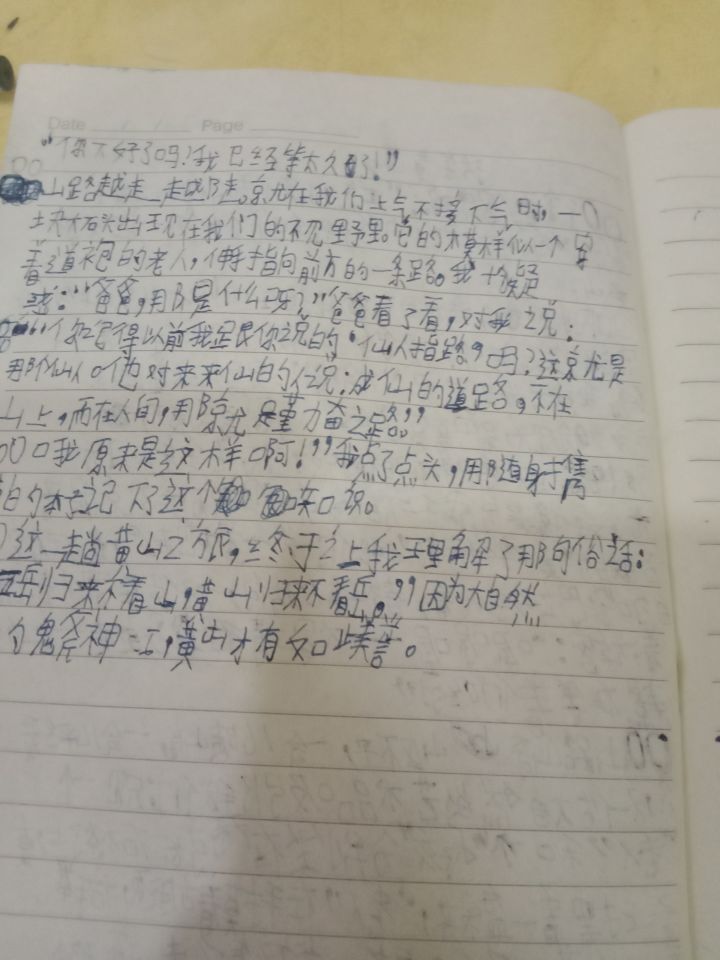 Date / / Page
“你不好了吗？我已经等太久了！”
山路越走越陡。就在我们上气不接下气时，一
块大石头出现在我们的视野里。它的模样似一个穿
着道袍的老人，伸手指向前方的一条路。我十分疑
惑：“爸爸，那是什么呀？”爸爸看了看，对我说：
“你记得以前我跟你说的‘仙人指路’吗？这就是
那仙人口他对来求仙的人说：成仙的道路，不在
山上，而在人间，那就是勤奋之路。”
口我原来是这样啊！”我点了点头，用随身携
的本子记下了这个知识。
这一趟黄山之旅，终于让我理解了那句俗话：
五岳归来不看山，黄山归来不看岳。”因为大自然
的鬼斧神工，黄山才有如此美誉。